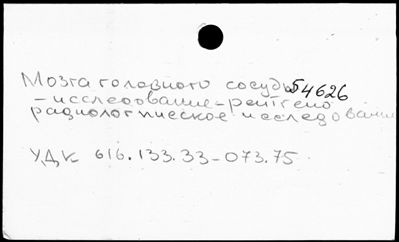 Мозга головного сосуды 54626
-исследование-рентгено
радиологическое исследование
УДК 616.133.33-073.75